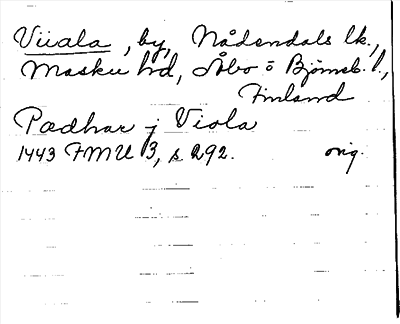 Viiala, by, Nådendals lk.,
Masku hd, Åbo o Björneb. l.,
Finland
Pædhar j Viola
1443 FMU 3, s 292. orig.